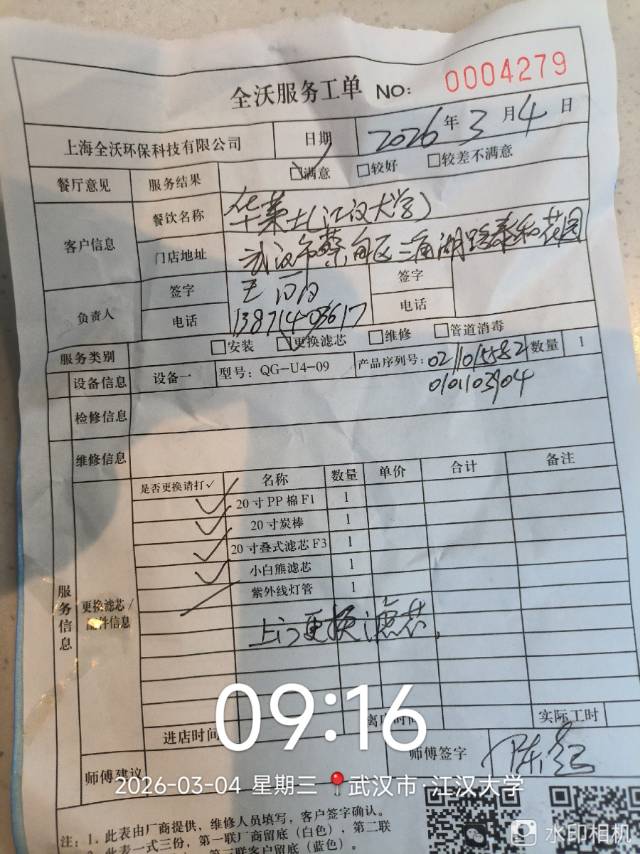 全沃服务工单 NO: 0004279
上海全沃环保科技有限公司 日期 2026年3月4日
餐厅意见 服务结果 ☑满意 □较好 □较差不满意
客户信息 餐饮名称 华莱士(江汉大学)
门店地址 武汉市蔡甸区三角湖路泰和花园
负责人 签字 签字
电话 13871403617 电话
服务类别 □安装 ☑更换滤芯 □维修 □管道消毒
设备信息 设备一 型号: QG-U4-09 产品序列号: 0211015582 数量 1
0101103904
检修信息
维修信息
服务信息 更换滤芯/配件信息
是否更换请打✓ 名称 数量 单价 合计 备注
✓ 20寸PP棉F1 1
✓ 20寸炭棒 1
✓ 20寸叠式滤芯F3 1
✓ 小白熊滤芯 1
紫外线灯管 1
上门更换滤芯.
09:16
进店时间 离店时间 实际工时
师傅建议 师傅签字
2026-03-04 星期三 武汉市·江汉大学
注: 1、此表由厂商提供, 维修人员填写, 客户签字确认。
2、此表一式三份, 第一联厂商留底(白色), 第二联
第三联客户留底(蓝色)。
水印相机